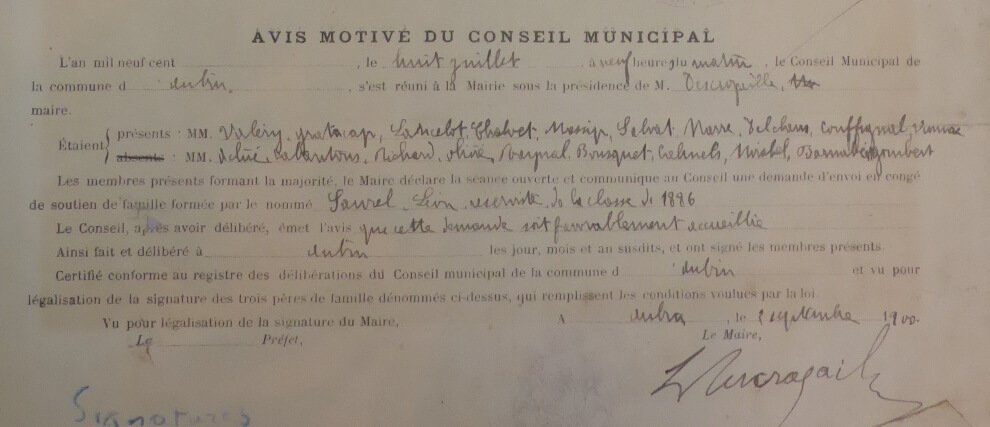 AVIS MOTIVÉ DU CONSEIL MUNICIPAL
L'an mil neuf cent , le huit juillet à neuf heure du matin, le Conseil Municipal de
la commune d aubin, s'est réuni à la Mairie sous la présidence de M.
maire.
Étaient présents : MM. Valéry, gratacap, Lancelot, Chalvet, Massip, Salvat, Marre, Delchans, Couffignal,
absents : MM. Richard, Olivié, Bousquet, Mirabel, gombert
Les membres présents formant la majorité, le Maire déclare la séance ouverte et communique au Conseil une demande d'envoi en congé
de soutien de famille formée par le nommé Saurel Léon réserviste de la classe de 1886
Le Conseil, après avoir délibéré, émet l'avis que cette demande soit favorablement accueillie
Ainsi fait et délibéré à aubin les jour, mois et an susdits, et ont signé les membres présents.
Certifié conforme au registre des délibérations du Conseil municipal de la commune d aubin et vu pour
légalisation de la signature des trois pères de famille dénommés ci-dessus, qui remplissent les conditions voulues par la loi.
Vu pour légalisation de la signature du Maire, A aubin, le 2 septembre 1900.
Le Préfet, Le Maire,
Signatures